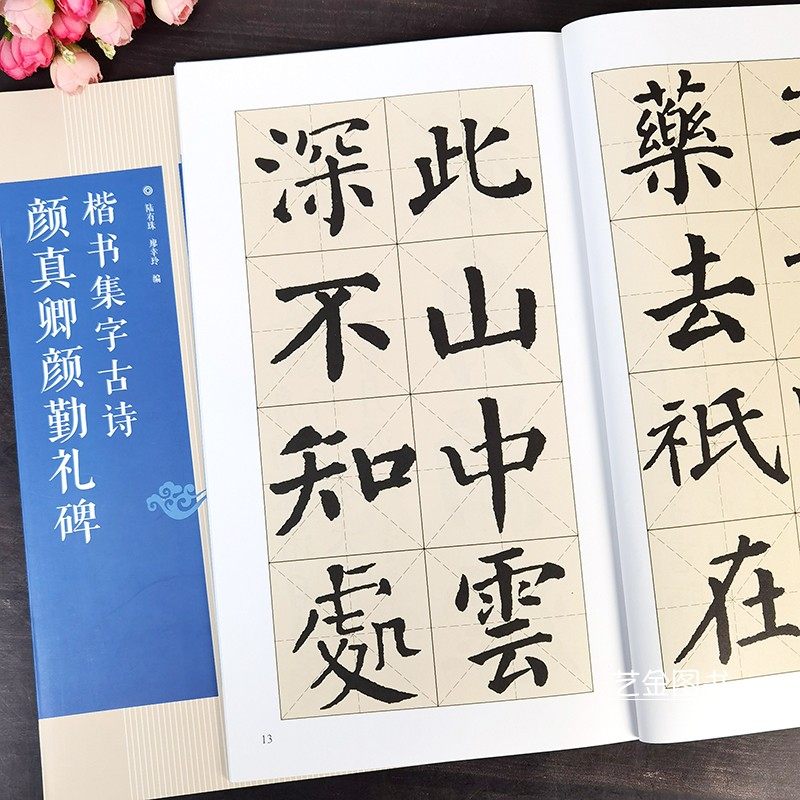 楷书集字古诗
颜真卿颜勤礼碑
陆有珠 廖幸玲 编
藥去祇在
此山中雲
深不知處
13
艺金图书